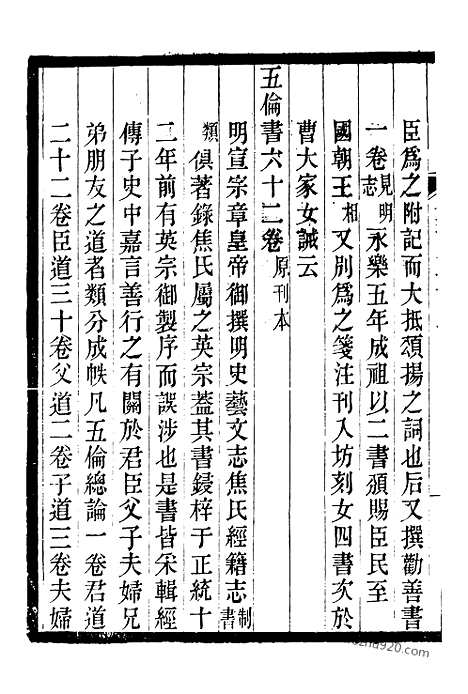 臣爲之附記而大抵頌揚之詞也后又撰勸善書
一卷見明志永樂五年成祖以二書頒賜臣民至
國朝王相又別爲之箋注刊入坊刻女四書次於
曹大家女誡云
五倫書六十二卷原刊本
明宣宗章皇帝御撰明史藝文志焦氏經籍志制書
類俱著錄焦氏屬之英宗蓋其書鋟梓于正統十
二年前有英宗御製序而誤涉也是書皆采輯經
傳子史中嘉言善行之有關於君臣父子夫婦兄
弟朋友之道者類分成帙凡五倫總論一卷君道
二十二卷臣道三十卷父道二卷子道三卷夫婦